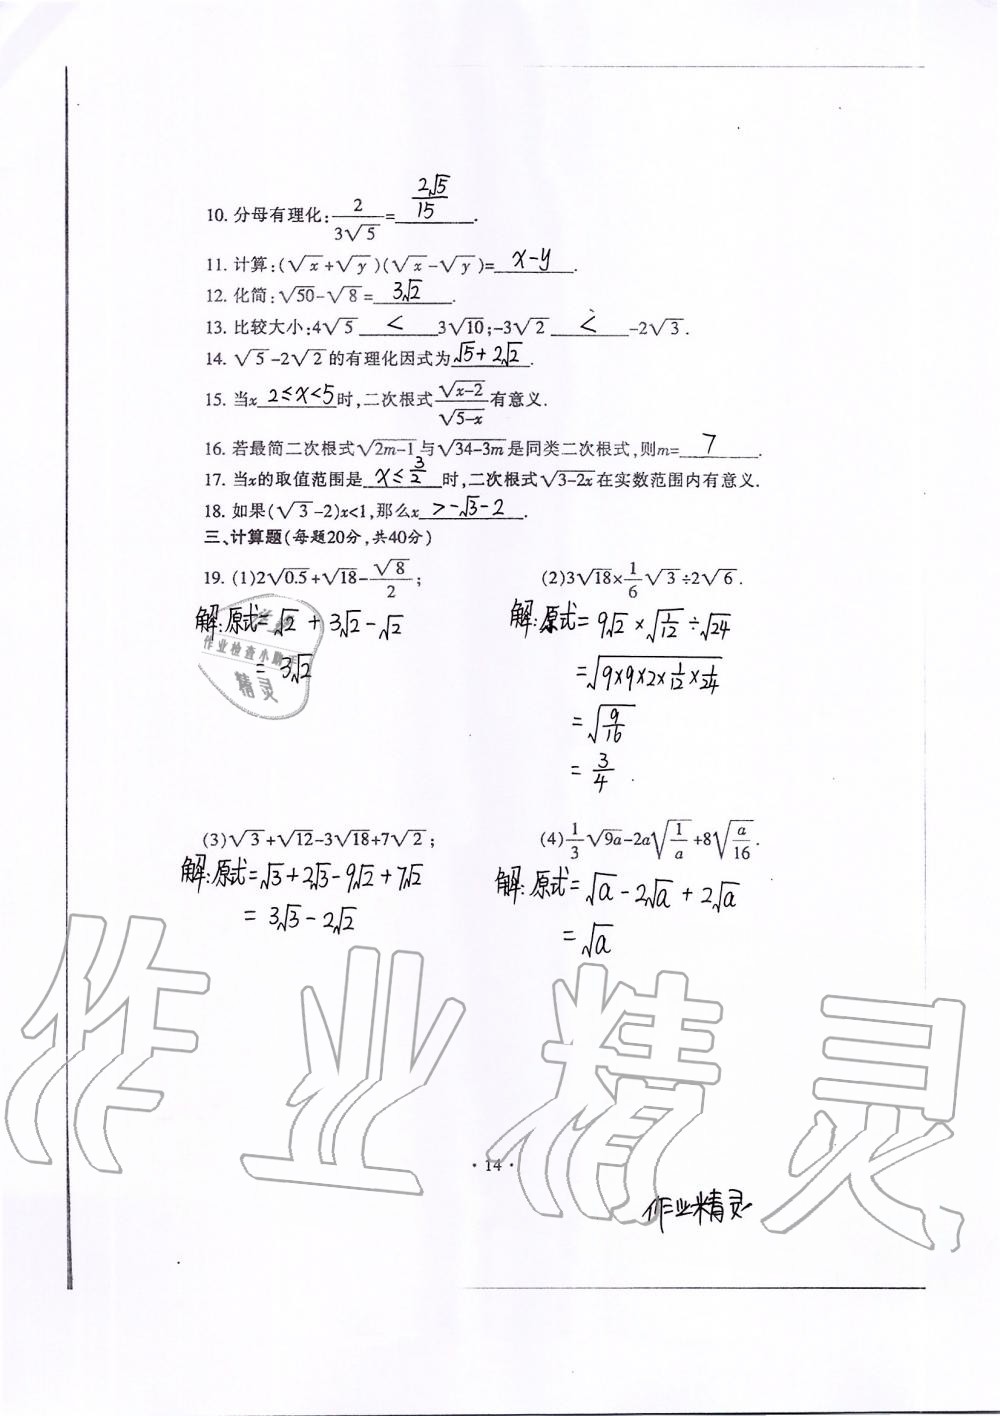 10. 分母有理化:2/(3√5)= 2√5/15 .
11. 计算:(√x+√y)(√x-√y)= x-y .
12. 化简:√50-√8= 3√2 .
13. 比较大小:4√5 < 3√10;-3√2 < -2√3.
14. √5-2√2的有理化因式为 √5+2√2 .
15. 当x 2≤x<5 时,二次根式 √(x-2)/√(5-x) 有意义.
16. 若最简二次根式√(2m-1)与√(34-3m)是同类二次根式,则m= 7 .
17. 当x的取值范围是 x≤3/2 时,二次根式√(3-2x)在实数范围内有意义.
18. 如果(√3-2)x<1,那么x >-√3-2 .
三、计算题(每题20分,共40分)
19. (1)2√0.5+√18-√8/2;
解:原式=√2+3√2-√2
=3√2
作业检查小助手
精灵
(2)3√18×1/6√3÷2√6.
解:原式=9√2×√(1/12)÷√24
=√(9×9×2×1/12×1/24)
=√(9/16)
=3/4.
(3)√3+√12-3√18+7√2;
解:原式=√3+2√3-9√2+7√2
=3√3-2√2
(4)1/3√9a-2a√(1/a)+8√(a/16).
解:原式=√a-2√a+2√a
=√a
作业精灵
· 14 ·
作业精灵